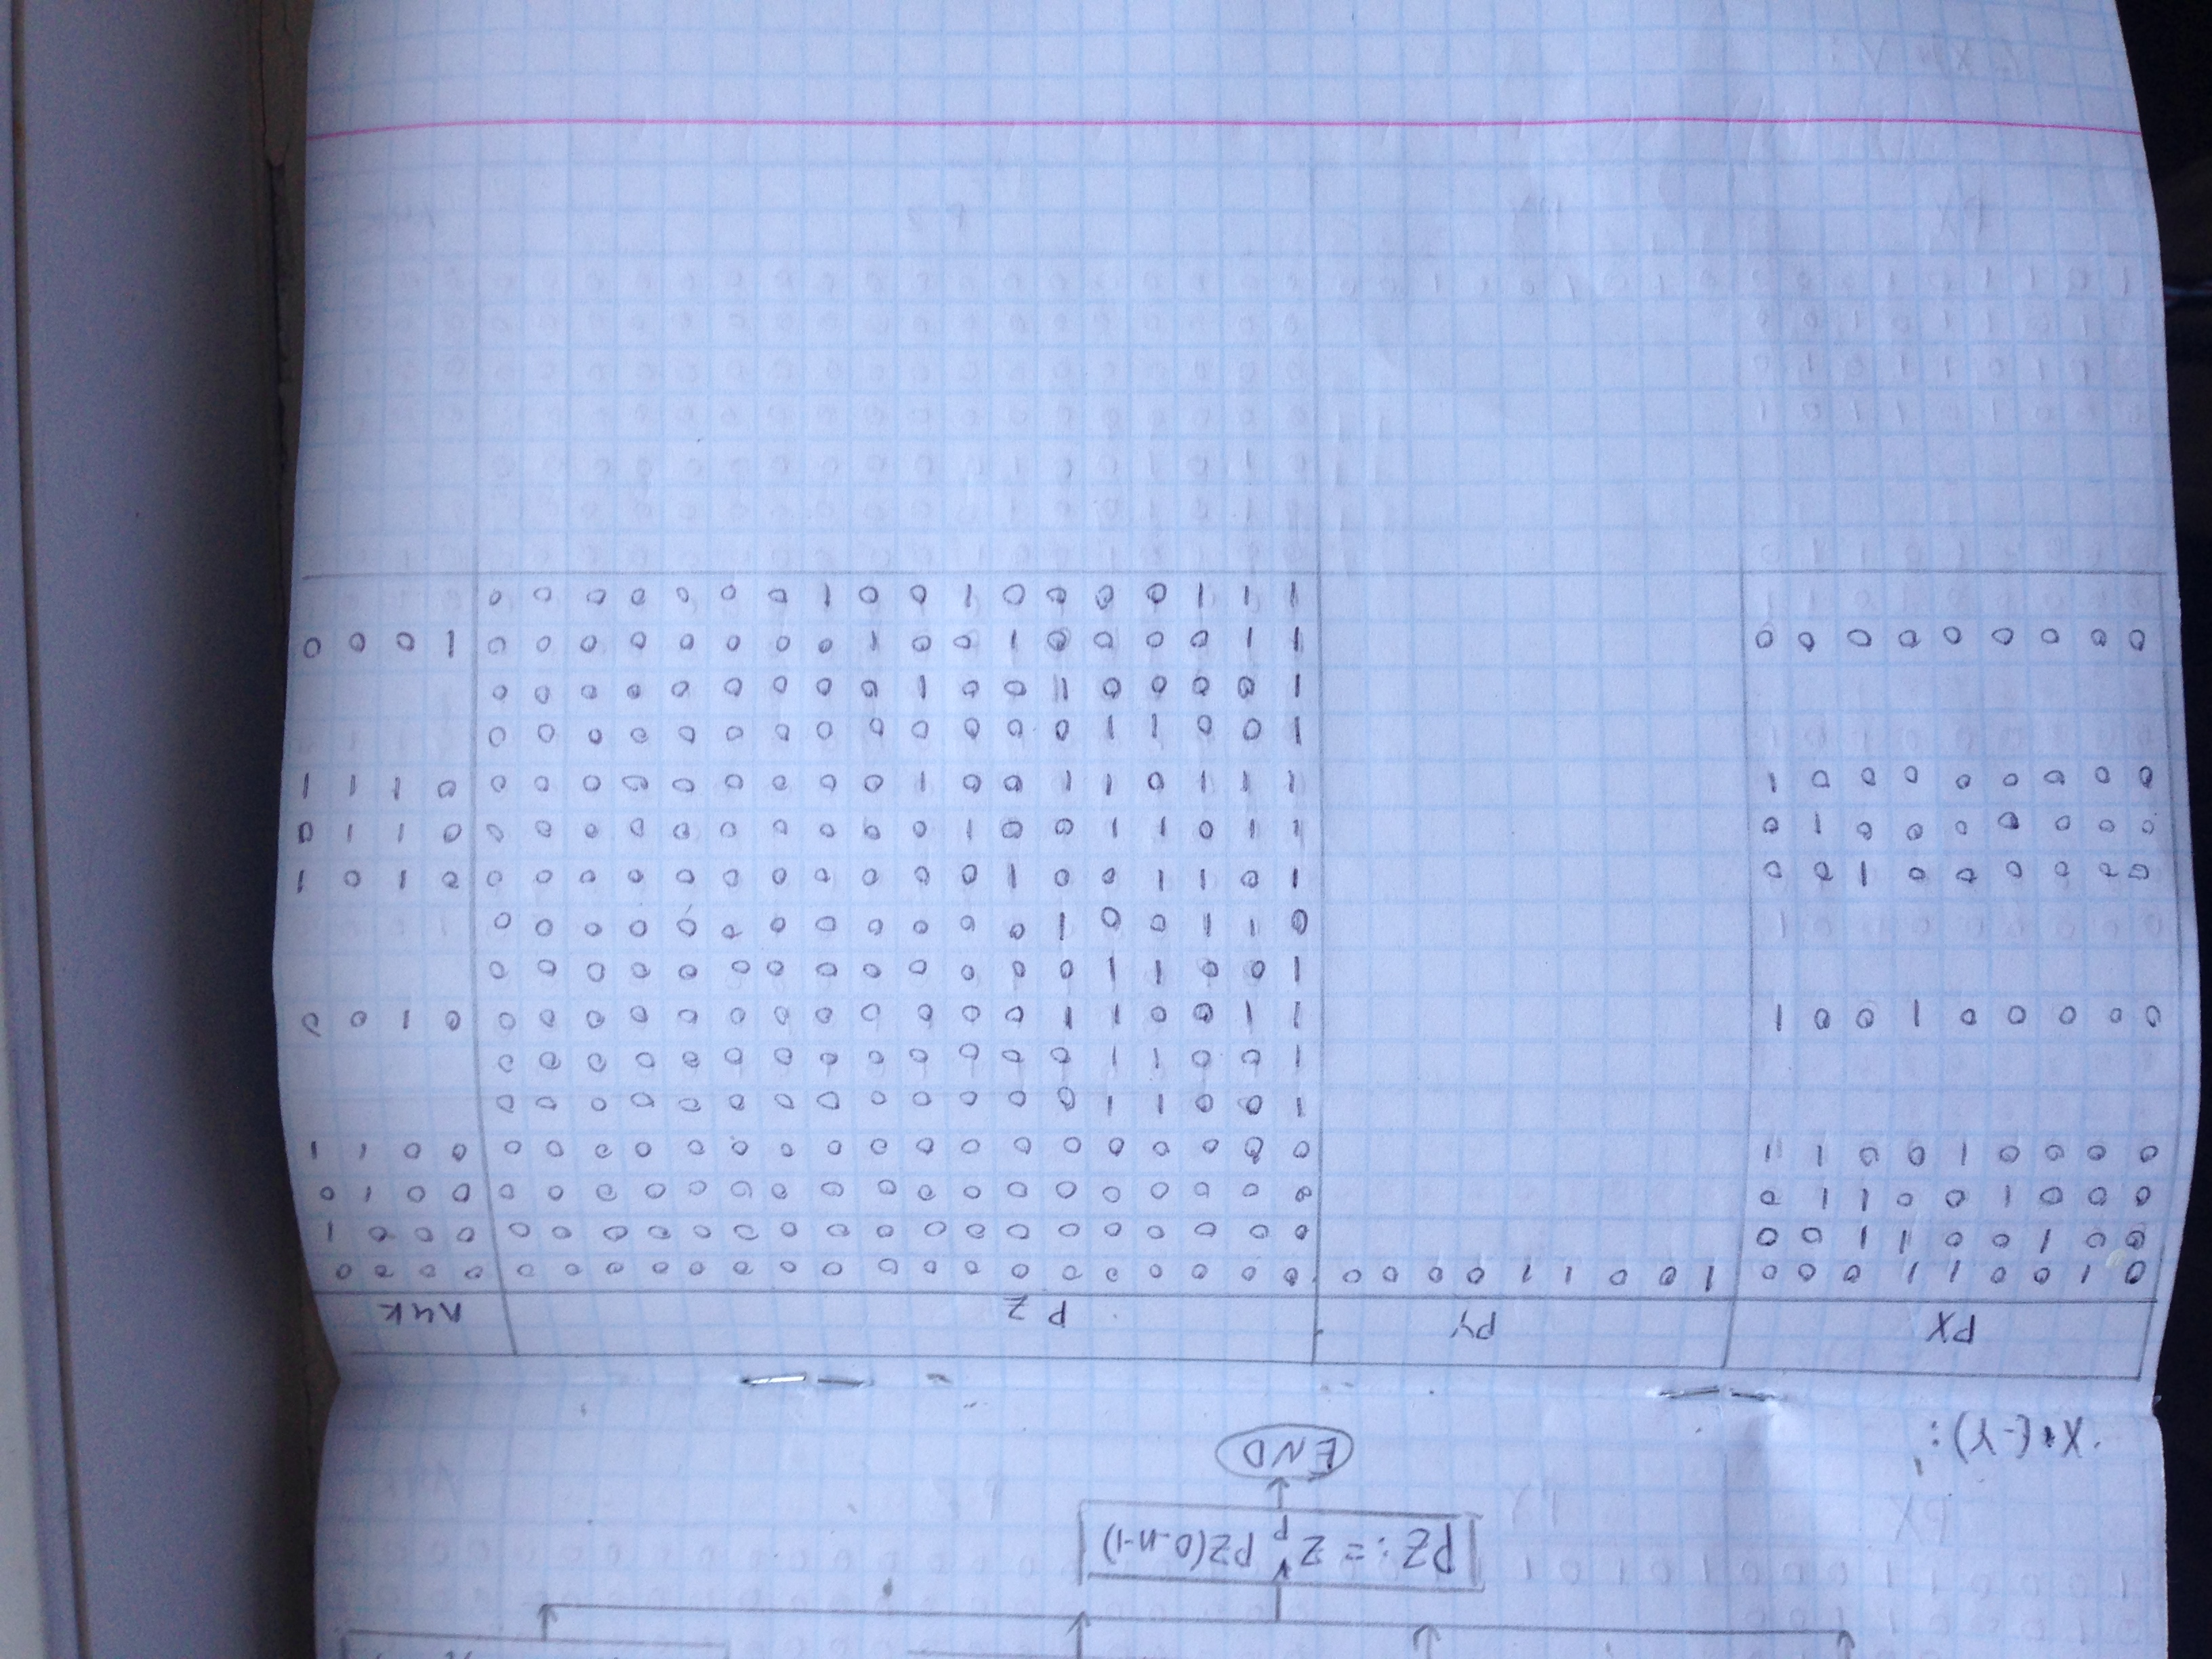 PZ := Z p PZ(0-n-1)
END
X*(-Y):
PX PY PZ ЛИК
0 1 0 0 1 1 0 0 0 1 0 0 1 1 0 0 0 0 0 0 0 0 0 0 0 0 0 0 0 0 0 0 0 0 0 0 0 0 0 0
0 0 1 0 0 1 1 0 0 0 0 0 0 0 0 0 0 0 0 0 0 0 0 0 0 0 0 0 0 0 1
0 0 0 1 0 0 1 1 0 0 0 0 0 0 0 0 0 0 0 0 0 0 0 0 0 0 0 0 0 1 0
0 0 0 0 1 0 0 1 1 0 0 0 0 0 0 0 0 0 0 0 0 0 0 0 0 0 0 0 0 1 1
1 0 0 1 1 0 0 0 0 0 0 0 0 0 0 0 0 0
1 0 0 1 1 0 0 0 0 0 0 0 0 0 0 0 0 0
0 0 0 0 0 1 0 0 1 1 1 0 0 1 1 0 0 0 0 0 0 0 0 0 0 0 0 0 1 0 0
1 0 0 1 1 0 0 0 0 0 0 0 0 0 0 0 0 0
0 1 1 0 0 1 0 0 0 0 0 0 0 0 0 0 0 0
0 0 0 0 0 0 1 0 0 1 0 1 1 0 0 1 0 0 0 0 0 0 0 0 0 0 0 0 1 0 1
0 0 0 0 0 0 0 1 0 1 1 0 1 1 0 0 1 0 0 0 0 0 0 0 0 0 0 0 1 1 0
0 0 0 0 0 0 0 0 1 1 1 1 0 1 1 0 0 1 0 0 0 0 0 0 0 0 0 0 1 1 1
1 0 0 1 1 0 0 0 0 0 0 0 0 0 0 0 0 0
1 0 0 0 0 1 0 0 1 0 0 0 0 0 0 0 0 0
0 0 0 0 0 0 0 0 0 1 1 0 0 0 0 1 0 0 1 0 0 0 0 0 0 0 0 1 0 0 0
1 1 1 0 0 0 0 1 0 0 1 0 0 0 0 0 0 0